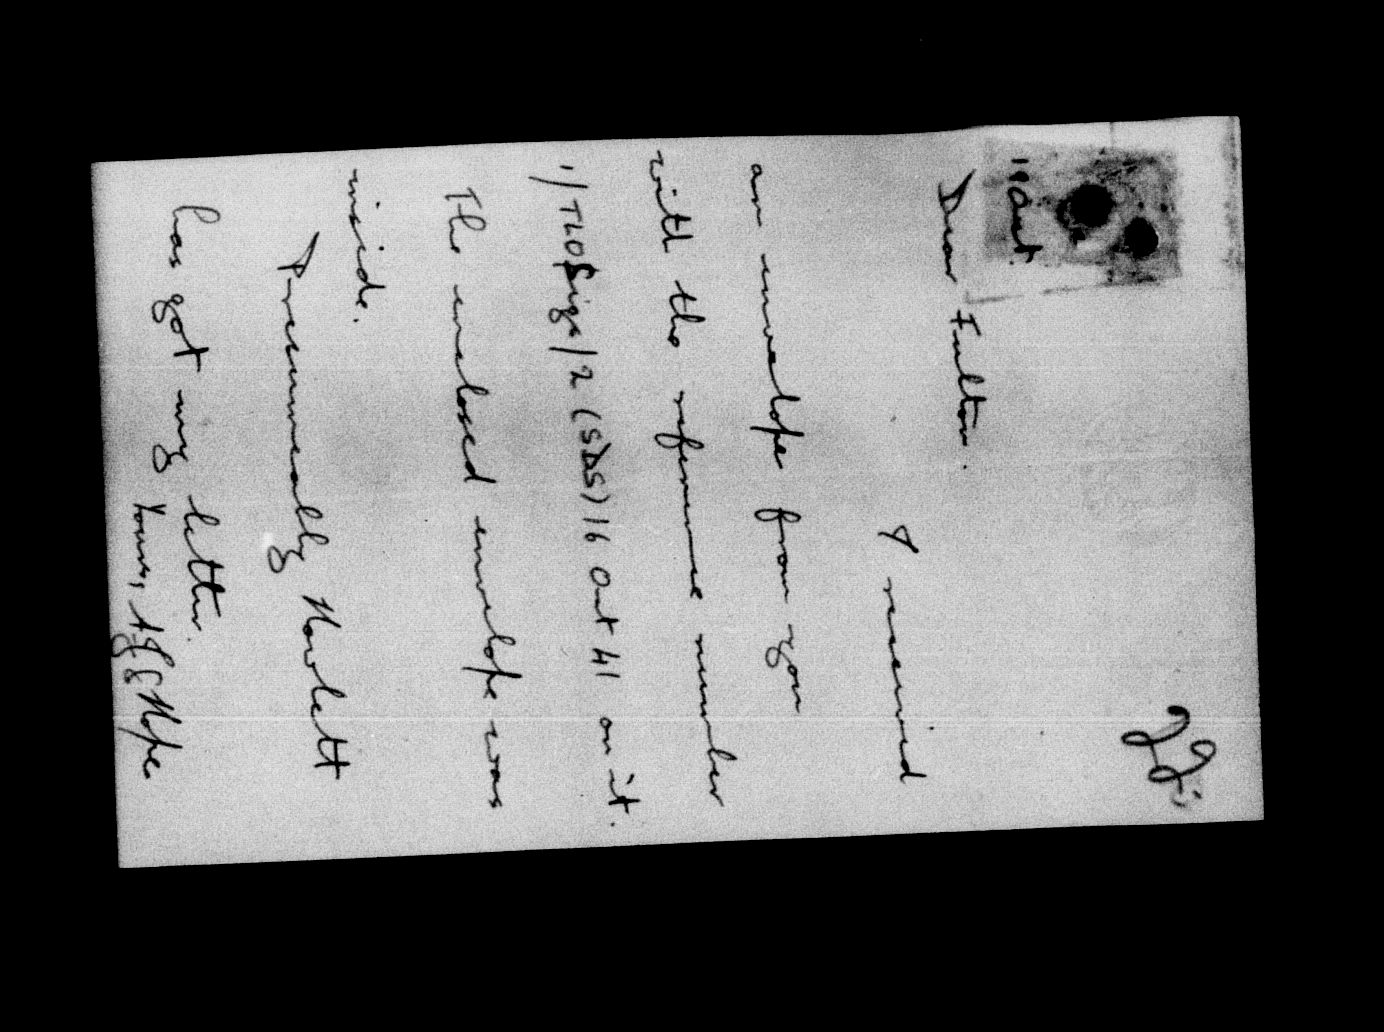 22i
" Oct.
Dear Fulton.
I received
an envelope from you
with the reference number
1/TLOSigs/2 (SDS) 16 Oct 41 on it.
The enclosed envelope was
inside.
Presumeably Howlett
has got my letter.
Yours,